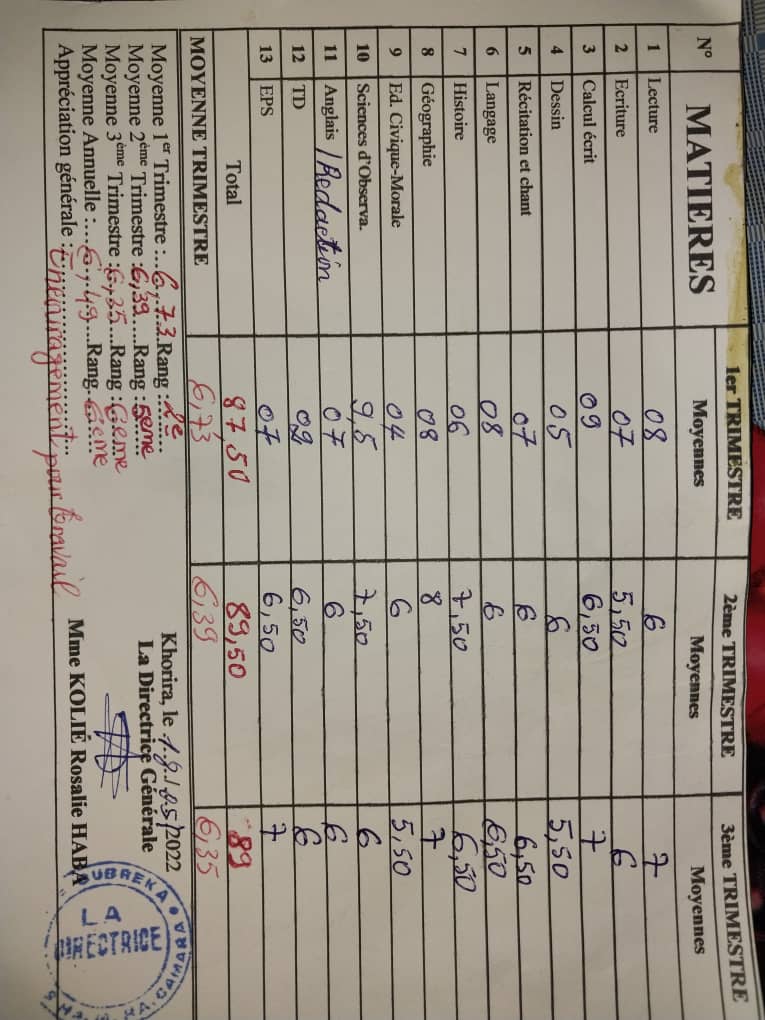 N° MATIERES 1er TRIMESTRE 2ème TRIMESTRE 3ème TRIMESTRE
Moyennes Moyennes Moyennes
1 Lecture 08 6 7
2 Ecriture 07 5,50 6
3 Calcul écrit 09 6,50 7
4 Dessin 05 6 5,50
5 Récitation et chant 07 6 6,50
6 Langage 08 6 6,50
7 Histoire 06 7,50 6,50
8 Géographie 08 8 7
9 Ed. Civique-Morale 04 6 5,50
10 Sciences d'Observa. 9,5 7,50 6
11 Anglais /Redaction 07 6 6
12 TD 6,50 6
13 EPS 07 6,50 7
Total 87,50 89,50 89
MOYENNE TRIMESTRE 6,73 6,39 6,35
Moyenne 1er Trimestre :..6,73 Rang :..2e....
Moyenne 2ème Trimestre :6,39.....Rang :5eme....
Moyenne 3ème Trimestre :6,35....Rang :6eme
Moyenne Annuelle :...6,49...Rang..6ieme
Appréciation générale :Encouragement pour travail
Khorira, le /05/2022
La Directrice Générale
Mme KOLIÉ Rosalie HABA
DUBREKA
CAMARA
LA
DIRECTRICE